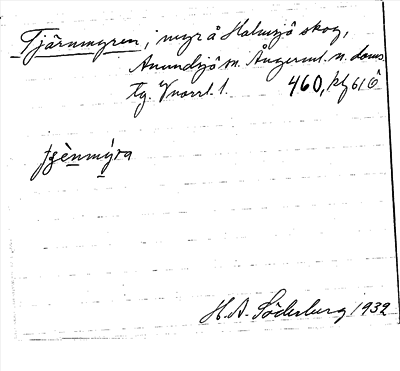 Tjärnmyren, myr å Holmsjö skog,
Anundsjö sn. Ångerml. n. doms.
tg. Vnorrl. l. 460, kf 61 Ö
H. A. Söderberg 1932